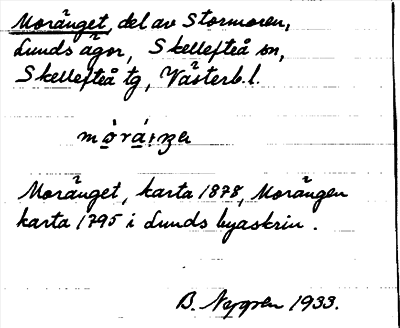 Moränget, del av Stormoren,
Lunds ägor, Skellefteå sn,
Skellefteå tg, Västerb. l.
Moränget, karta 1878, Morängen
karta 1795 i Lunds byaskrin.
B. Nygren 1933.